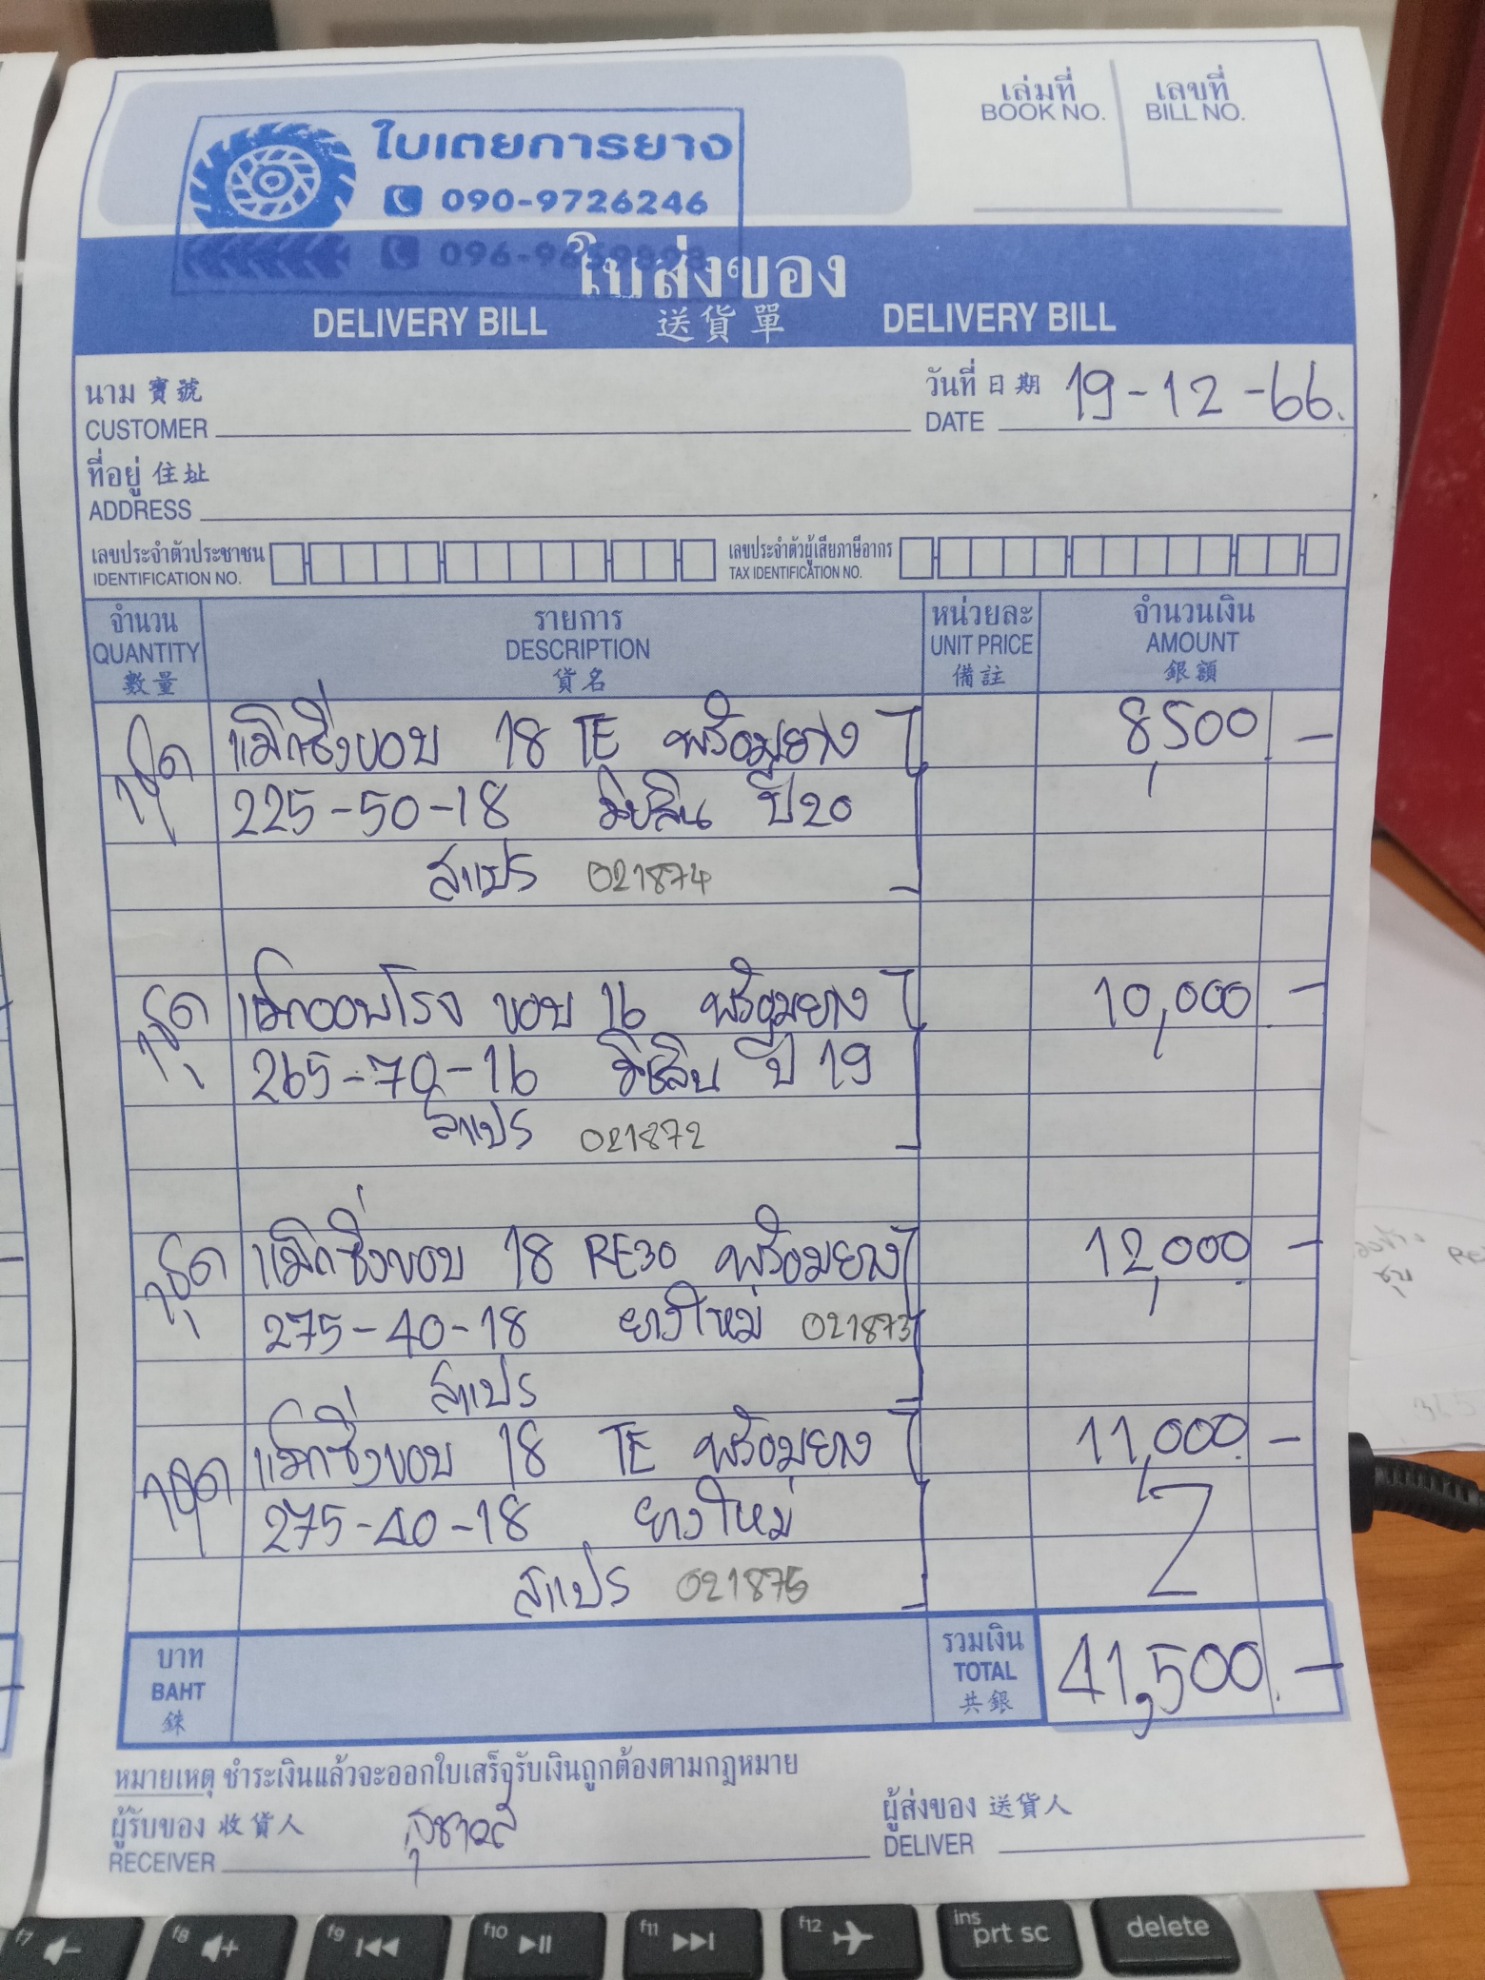 เล่มที่ เลขที่
BOOK NO. BILL NO.
ใบเตยการยาง
090-9726246
096-9659898
ใบส่งของ
DELIVERY BILL 送貨單 DELIVERY BILL
นาม 寶號 วันที่ 日期 19-12-66.
CUSTOMER DATE
ที่อยู่ 住址
ADDRESS
เลขประจำตัวประชาชน เลขประจำตัวผู้เสียภาษีอากร
IDENTIFICATION NO. TAX IDENTIFICATION NO.
จำนวน รายการ หน่วยละ จำนวนเงิน
QUANTITY DESCRIPTION UNIT PRICE AMOUNT
數量 貨名 備註 銀額
1ชุด แม็กซิ่งขอบ 18 TE พร้อมยาง 8,500 -
225-50-18 มิชลิน ปี 20
สแปร 021874
1ชุด แม็กออฟโรจ ขอบ 16 พร้อมยาง 10,000 -
265-70-16 มิชลิน ปี 19
สแปร 021872
1ชุด แม็กซิ่งขอบ 18 RE30 พร้อมยาง 12,000 -
275-40-18 ยางใหม่ 021873
สแปร
1ชุด แม็กซิ่งขอบ 18 TE พร้อมยาง 11,000 -
275-40-18 ยางใหม่
สแปร 021875
บาท รวมเงิน
BAHT TOTAL 41,500 -
銖 共銀
หมายเหตุ ชำระเงินแล้วจะออกใบเสร็จรับเงินถูกต้องตามกฎหมาย
ผู้รับของ 收貨人 ผู้ส่งของ 送貨人
RECEIVER DELIVER
f7 f8 f9 f10 f11 f12 ins prt sc delete